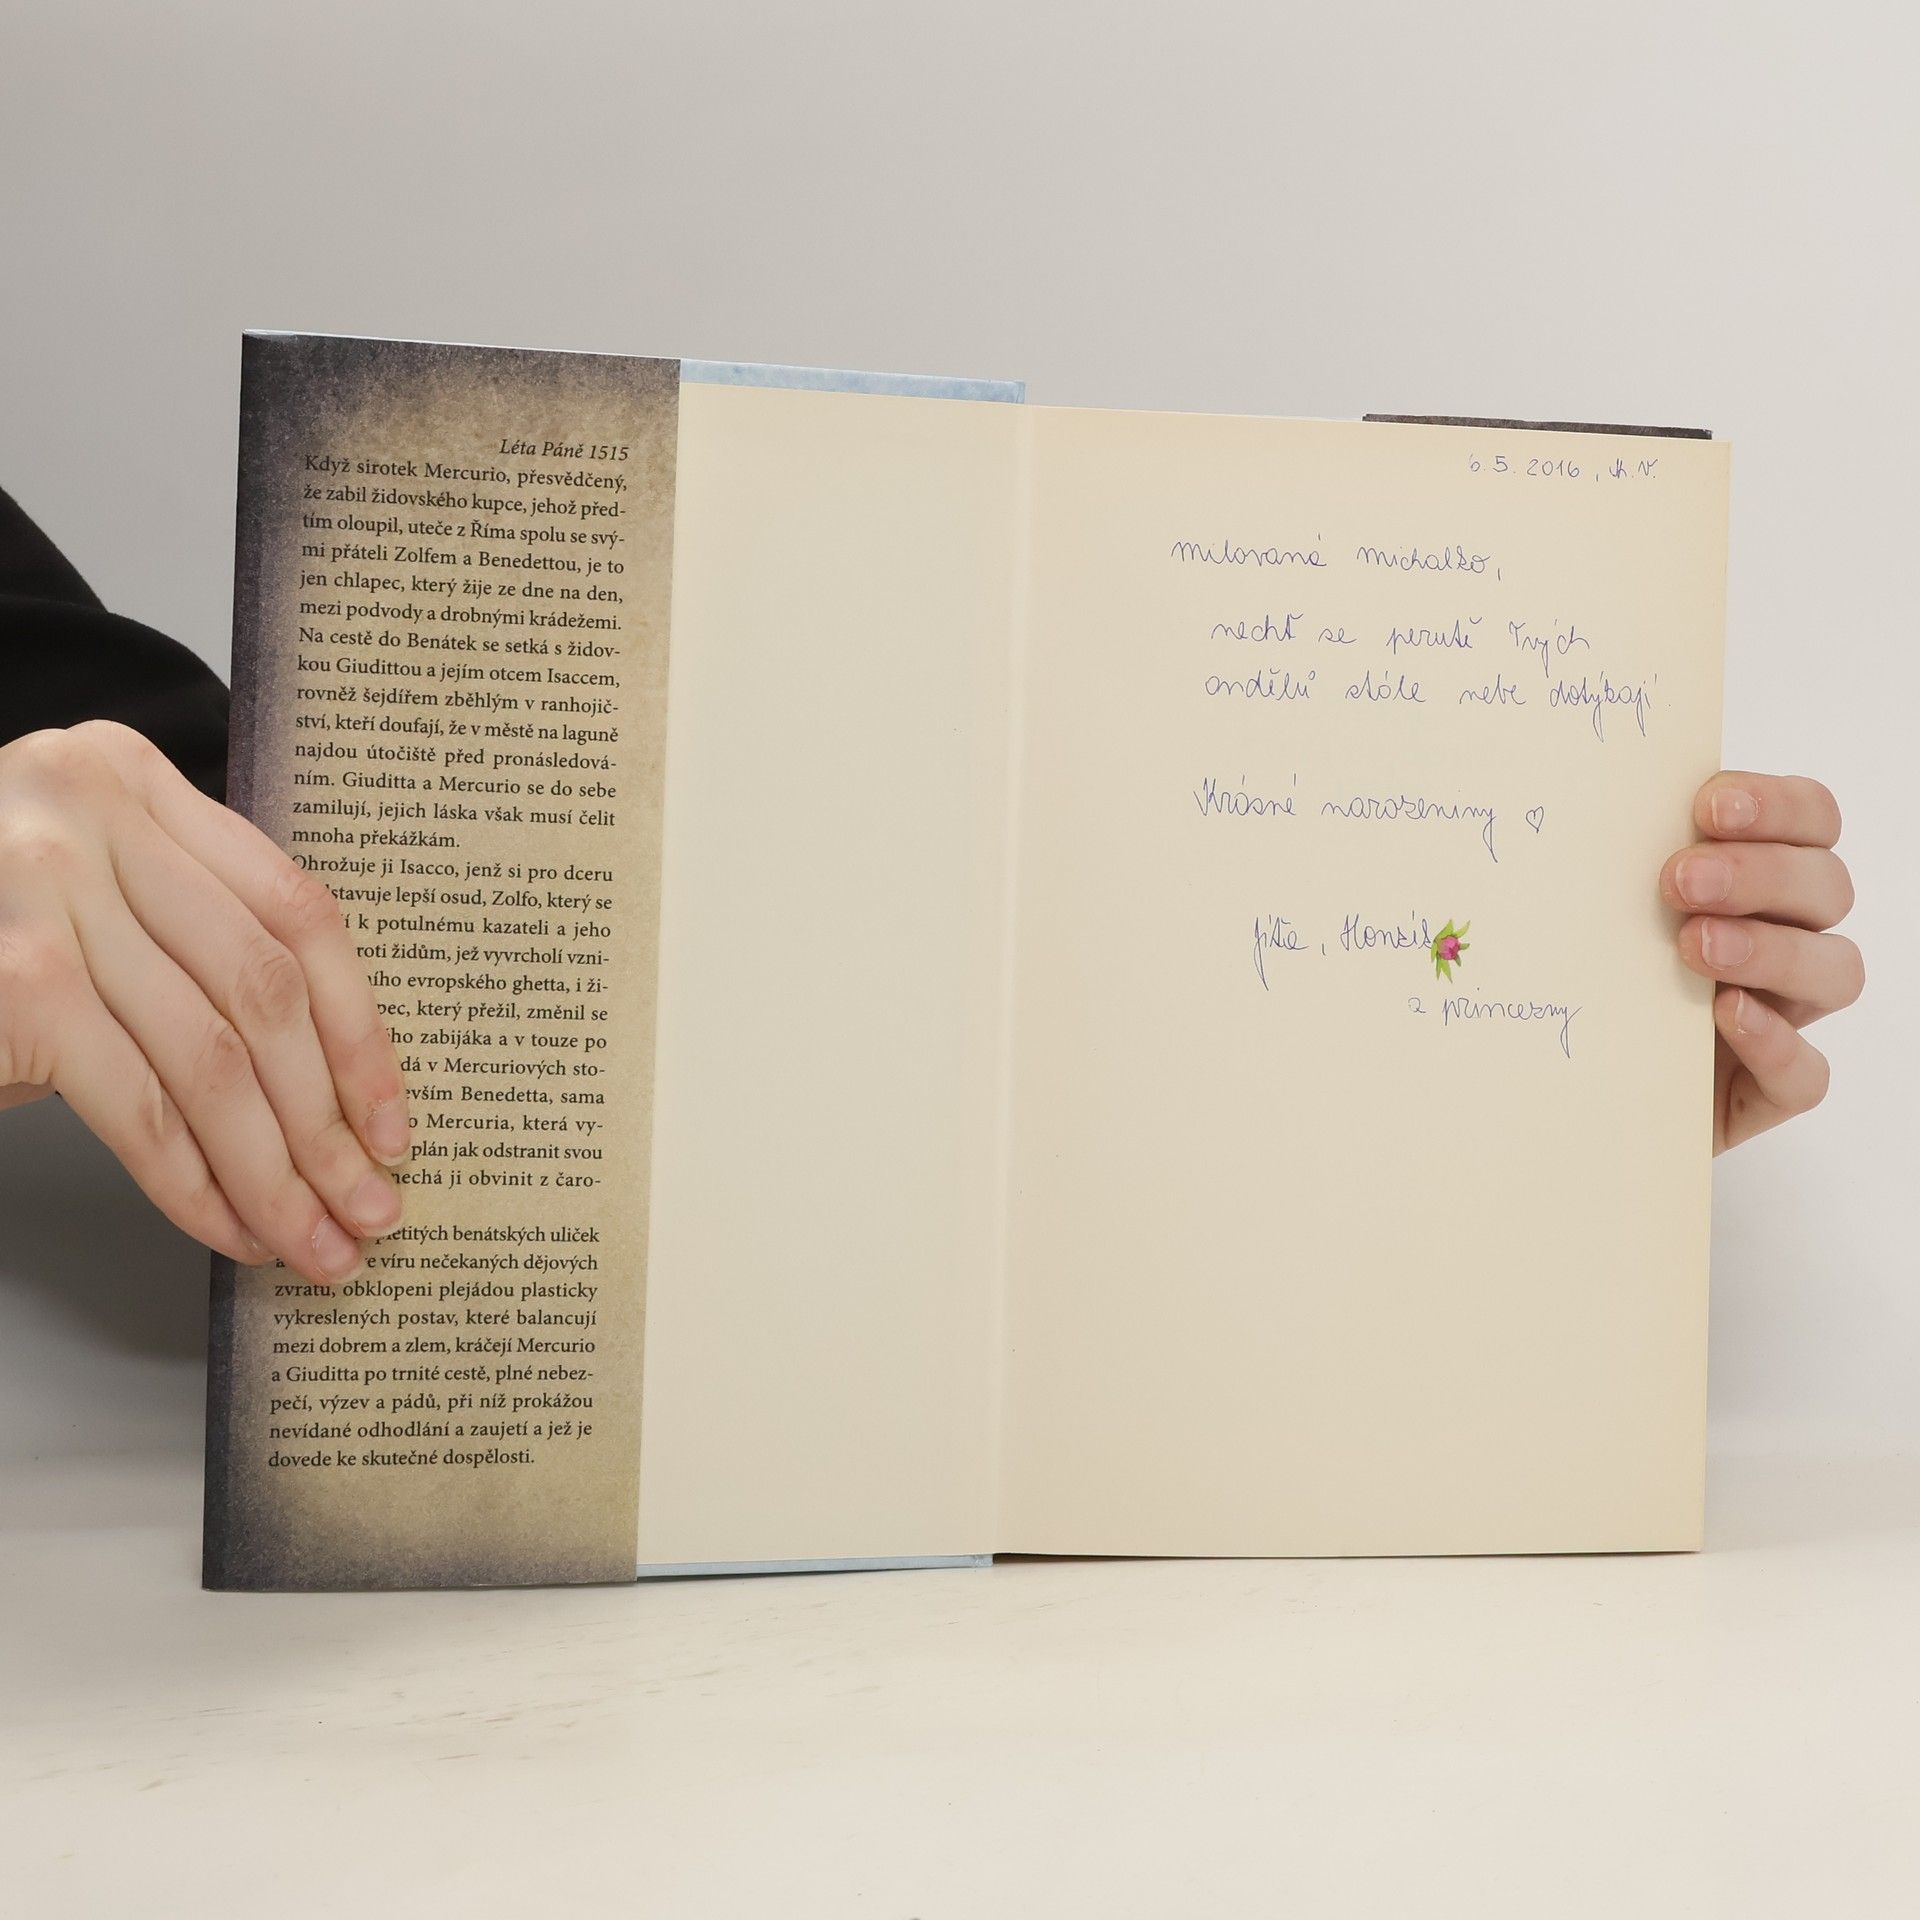 Léta Páně 1515
Když sirotek Mercurio, přesvědčený,
že zabil židovského kupce, jehož před-
tím oloupil, uteče z Říma spolu se svý-
mi přáteli Zolfem a Benedettou, je to
jen chlapec, který žije ze dne na den,
mezi podvody a drobnými krádežemi.
Na cestě do Benátek se setká s židov-
kou Giudittou a jejím otcem Isaccem,
rovněž šejdířem zběhlým v ranhojič-
ství, kteří doufají, že v městě na laguně
najdou útočiště před pronásledová-
ním. Giuditta a Mercurio se do sebe
zamilují, jejich láska však musí čelit
mnoha překážkám.
Ohrožuje ji Isacco, jenž si pro dceru
stavuje lepší osud, Zolfo, který se
í k potulnému kazateli a jeho
roti židům, jež vyvrcholí vzni-
ího evropského ghetta, i ži-
pec, který přežil, změnil se
ho zabijáka a v touze po
dá v Mercuriových sto-
evším Benedetta, sama
o Mercuria, která vy-
plán jak odstranit svou
nechá ji obvinit z čaro-
pletitých benátských uliček
a ve víru nečekaných dějových
zvratů, obklopeni plejádou plasticky
vykreslených postav, které balancují
mezi dobrem a zlem, kráčejí Mercurio
a Giuditta po trnité cestě, plné nebez-
pečí, výzev a pádů, při níž prokážou
nevídané odhodlání a zaujetí a jež je
dovede ke skutečné dospělosti.
6.5. 2016, K.V.
Milovaná Michalko,
nechť se perutě Tvých
andělů stále nebe dotýkají
Krásné narozeniny ♡
Jíťa, Honzík
a princezny